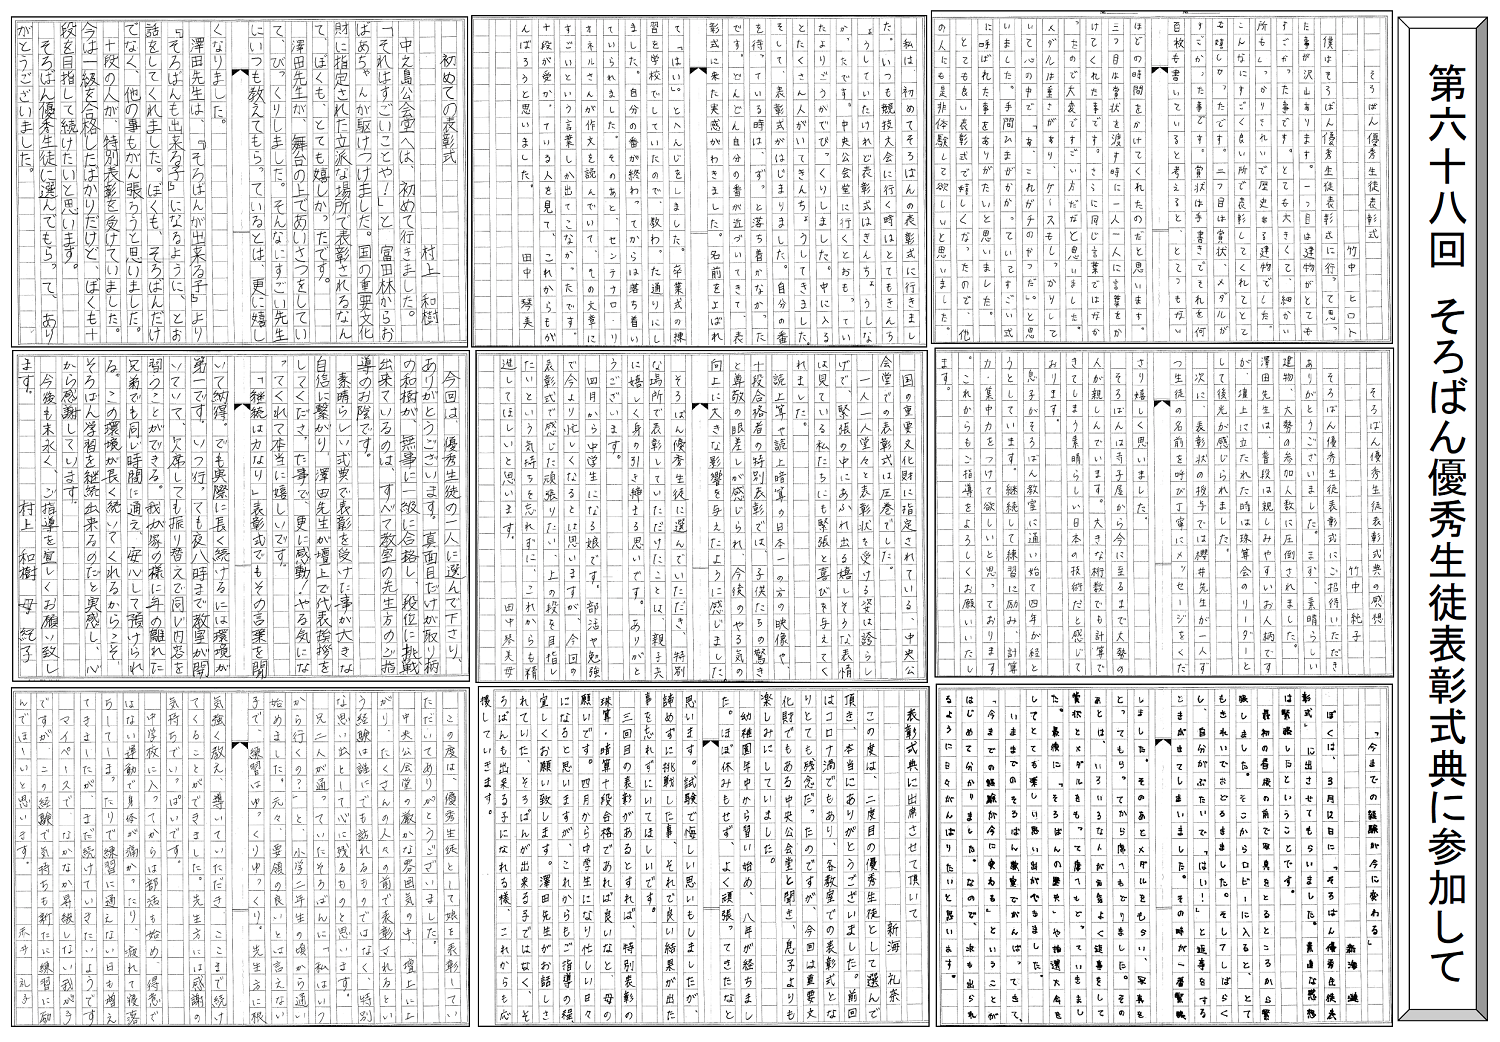 第六十八回 そろばん優秀生徒表彰式典に参加して
そろばん優秀生徒表彰式
竹中 ヒロト
僕はそろばん優秀生徒表彰式に行って思っ
た事が沢山あります。一つ目は建物がとても
大きかった事です。とても大きくて、細かい
所もしっかりされていて歴史ある建物でした。
こんなにすごく良い所で表彰してくれてとて
も嬉しかったです。二つ目は賞状、メダルが
すごかった事です。賞状は手書きでそれを何
百枚も書いていると考えると、とてつもない
ほどの時間をかけてくれたのだと思います。
三つ目は賞状を渡す時に一人一人に言葉をか
けてくれた事です。さらに同じ言葉ではなか
ったので大変ですごい方だなと思いました。
メダルは重さがあり、ケースもしっかりして
いました。手間ひまがかかっていてすごい式
に呼ばれた事をありがたいと思いました。
とても良い表彰式で嬉しくなったので、他
の人にも是非体験して欲しいなと思いました。
私は、初めてそろばんの表彰式に行きまし
た。いつも競技大会に行く時はとてもきんち
ょうしていたけれど表彰式はきんちょうしな
かったです。中央公会堂に行くとおもってい
たよりごうかでびっくりしました。中に入る
とたくさん人がいてきんちょうしてきました。
そして、表彰式がはじまりました。自分の番
を待っている時は、ずっと落ち着かなかった
です。どんどん自分の番が近づいてきて、表
彰式に来た実感がわきました。名前をよばれ
て「はい」とへんじをしました。卒業式の練
習を学校でしていたので、教わった通りにし
ました。自分の番が終わってからは落ち着い
ていられました。そのあと、センテナリロ・
オネルさんが作文を読んでいて、その文章に
すごいという言葉しか出てこなかったです。
十段が受かっている人を見て、これからもが
んばろうと思いました。 田中 琴美
初めての表彰式
村上 和樹
中之島公会堂へは、初めて行きました。
「それはすごいことや！」と富田林からお
ばあちゃんが駆けつけました。国の重要文化
財に指定された立派な場所で表彰されるなん
て、ぼくも、とても嬉しかったです。
澤田先生が、舞台の上であいさつをしてい
て、びっくりしました。そんなにすごい先生
にいつも教えてもらっているとは、更に嬉し
くなりました。
澤田先生は、『そろばんが出来る子』より
『そろばんも出来る子』になるように、とお
話をしてくれました。ぼくも、そろばんだけ
でなく、他の事もがん張ろうと思いました。
十段の人が、特別表彰を受けていました。
今は一級を合格したばかりだけど、ぼくも十
段を目指して続けたいと思います。
そろばん優秀生徒に選んでもらって、あり
がとうございました。
そろばん優秀生徒表彰式典の感想
竹中 純子
そろばん優秀生徒表彰式にご招待いただき
ありがとうございました。まず、素晴らしい
建物、大勢の参加人数に圧倒されました。
澤田先生は、普段は親しみやすいお人柄です
が、壇上に立たれた時は珠算会のリーダーと
して後光が感じられました。
次に、表彰状の授与では櫻井先生が一人ず
つ生徒の名前を呼び丁寧にメッセージをくだ
さり嬉しく思いました。
そろばんは寺子屋から今に至るまで大勢の
人が親しんでいます。大きな桁数でも計算で
きてしまう素晴らしい日本の技術だと感じて
おります。
息子がそろばん教室に通い始て四年が経と
うとしています。継続して練習に励み、計算
力、集中力をつけて欲しいと思っております
。これからもご指導をよろしくお願いいたし
ます。
国の重要文化財に指定されている、中央公
会堂での表彰式は圧巻でした。
一人一人堂々と表彰状を受ける姿は誇らし
げで、緊張の中にあふれ出る嬉しそうな表情
は見ている私たちにも緊張と喜びを与えてく
れました。
読上算や読上暗算の日本一の方の映像や、
十段合格者の特別表彰では、子供たちの驚き
と尊敬の眼差しが感じられ、今後のやる気の
向上に大きな影響を与えたように感じました。
そろばん優秀生徒に選んでいただき、特別
な場所で表彰していただけたことは、親子共
に嬉しく身の引き締まる思いです。ありがと
うございます。
四月から中学生になる娘です。部活や勉強
で今より忙しくなるとは思いますが、今回の
表彰式で感じた頑張りたい、上の段を目指し
たいという気持ちを忘れずに、これからも精
進してほしいと思います。 田中琴美母
今回は、優秀生徒の一人に選んで下さり、
ありがとうございます。真面目だけが取り柄
の和樹が、無事に一級に合格し、段位に挑戦
出来ているのは、すべて教室の先生方のご指
導のお陰です。
素晴らしい式典で表彰を受けた事が大きな
自信に繋がり、澤田先生が壇上で代表挨拶を
してくださった事で、更に感動！やる気にな
ってくれて本当に嬉しいです。
「継続は力なり」表彰式でもその言葉を聞
いて納得。でも実際に長く続けるには環境が
第一です。いつ行っても夜八時まで教室が開
いていて、欠席しても振り替えで同じ内容を
習うことができる。我が家の様に年の離れた
兄弟でも同じ時間に通え、安心して預けられ
る。この環境が長く続いてくれるからこそ、
そろばん学習を継続出来るのだと実感し、心
から感謝しています。
今後も末永く、ご指導を宜しくお願い致し
ます。 村上 和樹 母 紀子
「今までの経験が今に変わる」
新海 漣
ぼくは、3月12日に「そろばん優秀生徒表
彰式」に出させてもらいました。素直な感想
は緊張したということです。
最初の最後の前で写真をとるところから緊
張しました。そこからロビーに入ると、とて
もきれいでした。そして、しばらく
し、自分がよばれたので「はい！」と返事をする
しました。そのあとメダルをもらい、写真を
とってもらってから席へもどりました。その
あとは、いろいろな人が名前よく返事をして
賞状とメダルをもって席へもどっていきました
してとても楽しい思い出ができました。
いままでのそろばん教室でがんばってきて、
「今までの経験が今に変わる」ということが
はじめて分かりました。なので、次も出られ
るように日々がんばりたいと思います。
表彰式典に出席させて頂いて
新海 礼奈
この度は、二度目の優秀生徒として選んで
頂き、本当にありがとうございました。前回
はコロナ渦でもあり、各教室での表彰式とな
りとても残念だったのですが、今回は重要文
化財でもある中央公会堂と聞き、息子よりも
楽しみにしていました。
幼稚園年中から習い始め、八年が経ちまし
た。ほぼ休みもせず、よく頑張ってきたなと
思います。試験で悔しい思いもしましたが、
諦めずに挑戦した事、それで良い結果が出た
事を忘れずにいてほしいです。
三回目の表彰があるとすれば、特別表彰の
珠算・暗算十段合格であれば良いなと、母の
願いです。四月から中学生になり忙しい日々
になると思いますが、これからもご指導の程
宜しくお願い致します。澤田先生がお話しさ
れていた、そろばんが出来る子ではなく、そ
ろばんも出来る子になれる様、これからも応
援していきます。
この度は、優秀生徒として娘を表彰してい
ただいてありがとうございました。
中央公会堂の厳かな雰囲気の中、壇上に上
がり、たくさんの人々の前で表彰されるとい
う経験は誰にでも訪れるものではなく、特別
な思い出として心に残るものと思います。
兄二人が通っていたそろばんに「私はいつ
から行くの？」と、小学二年生の頃から通い
始めました。元々、要領の良いとは言えない
子で、練習はゆっくりゆっくり。先生方に根
気強く教え、導いていただき、ここまで続け
てくることができました。先生方には感謝の
気持ちでいっぱいです。
中学校に入ってからは部活も始め、得意で
はない運動で身体が痛かったり、疲れて寝落
ちしてしまったりで練習に通えない日も増え
てきましたが、まだ続けていきたいようです
マイペースで、なかなか昇級しない我が子
ですが、この経験で気持ちも新たに練習に励
んでほしいと思います。